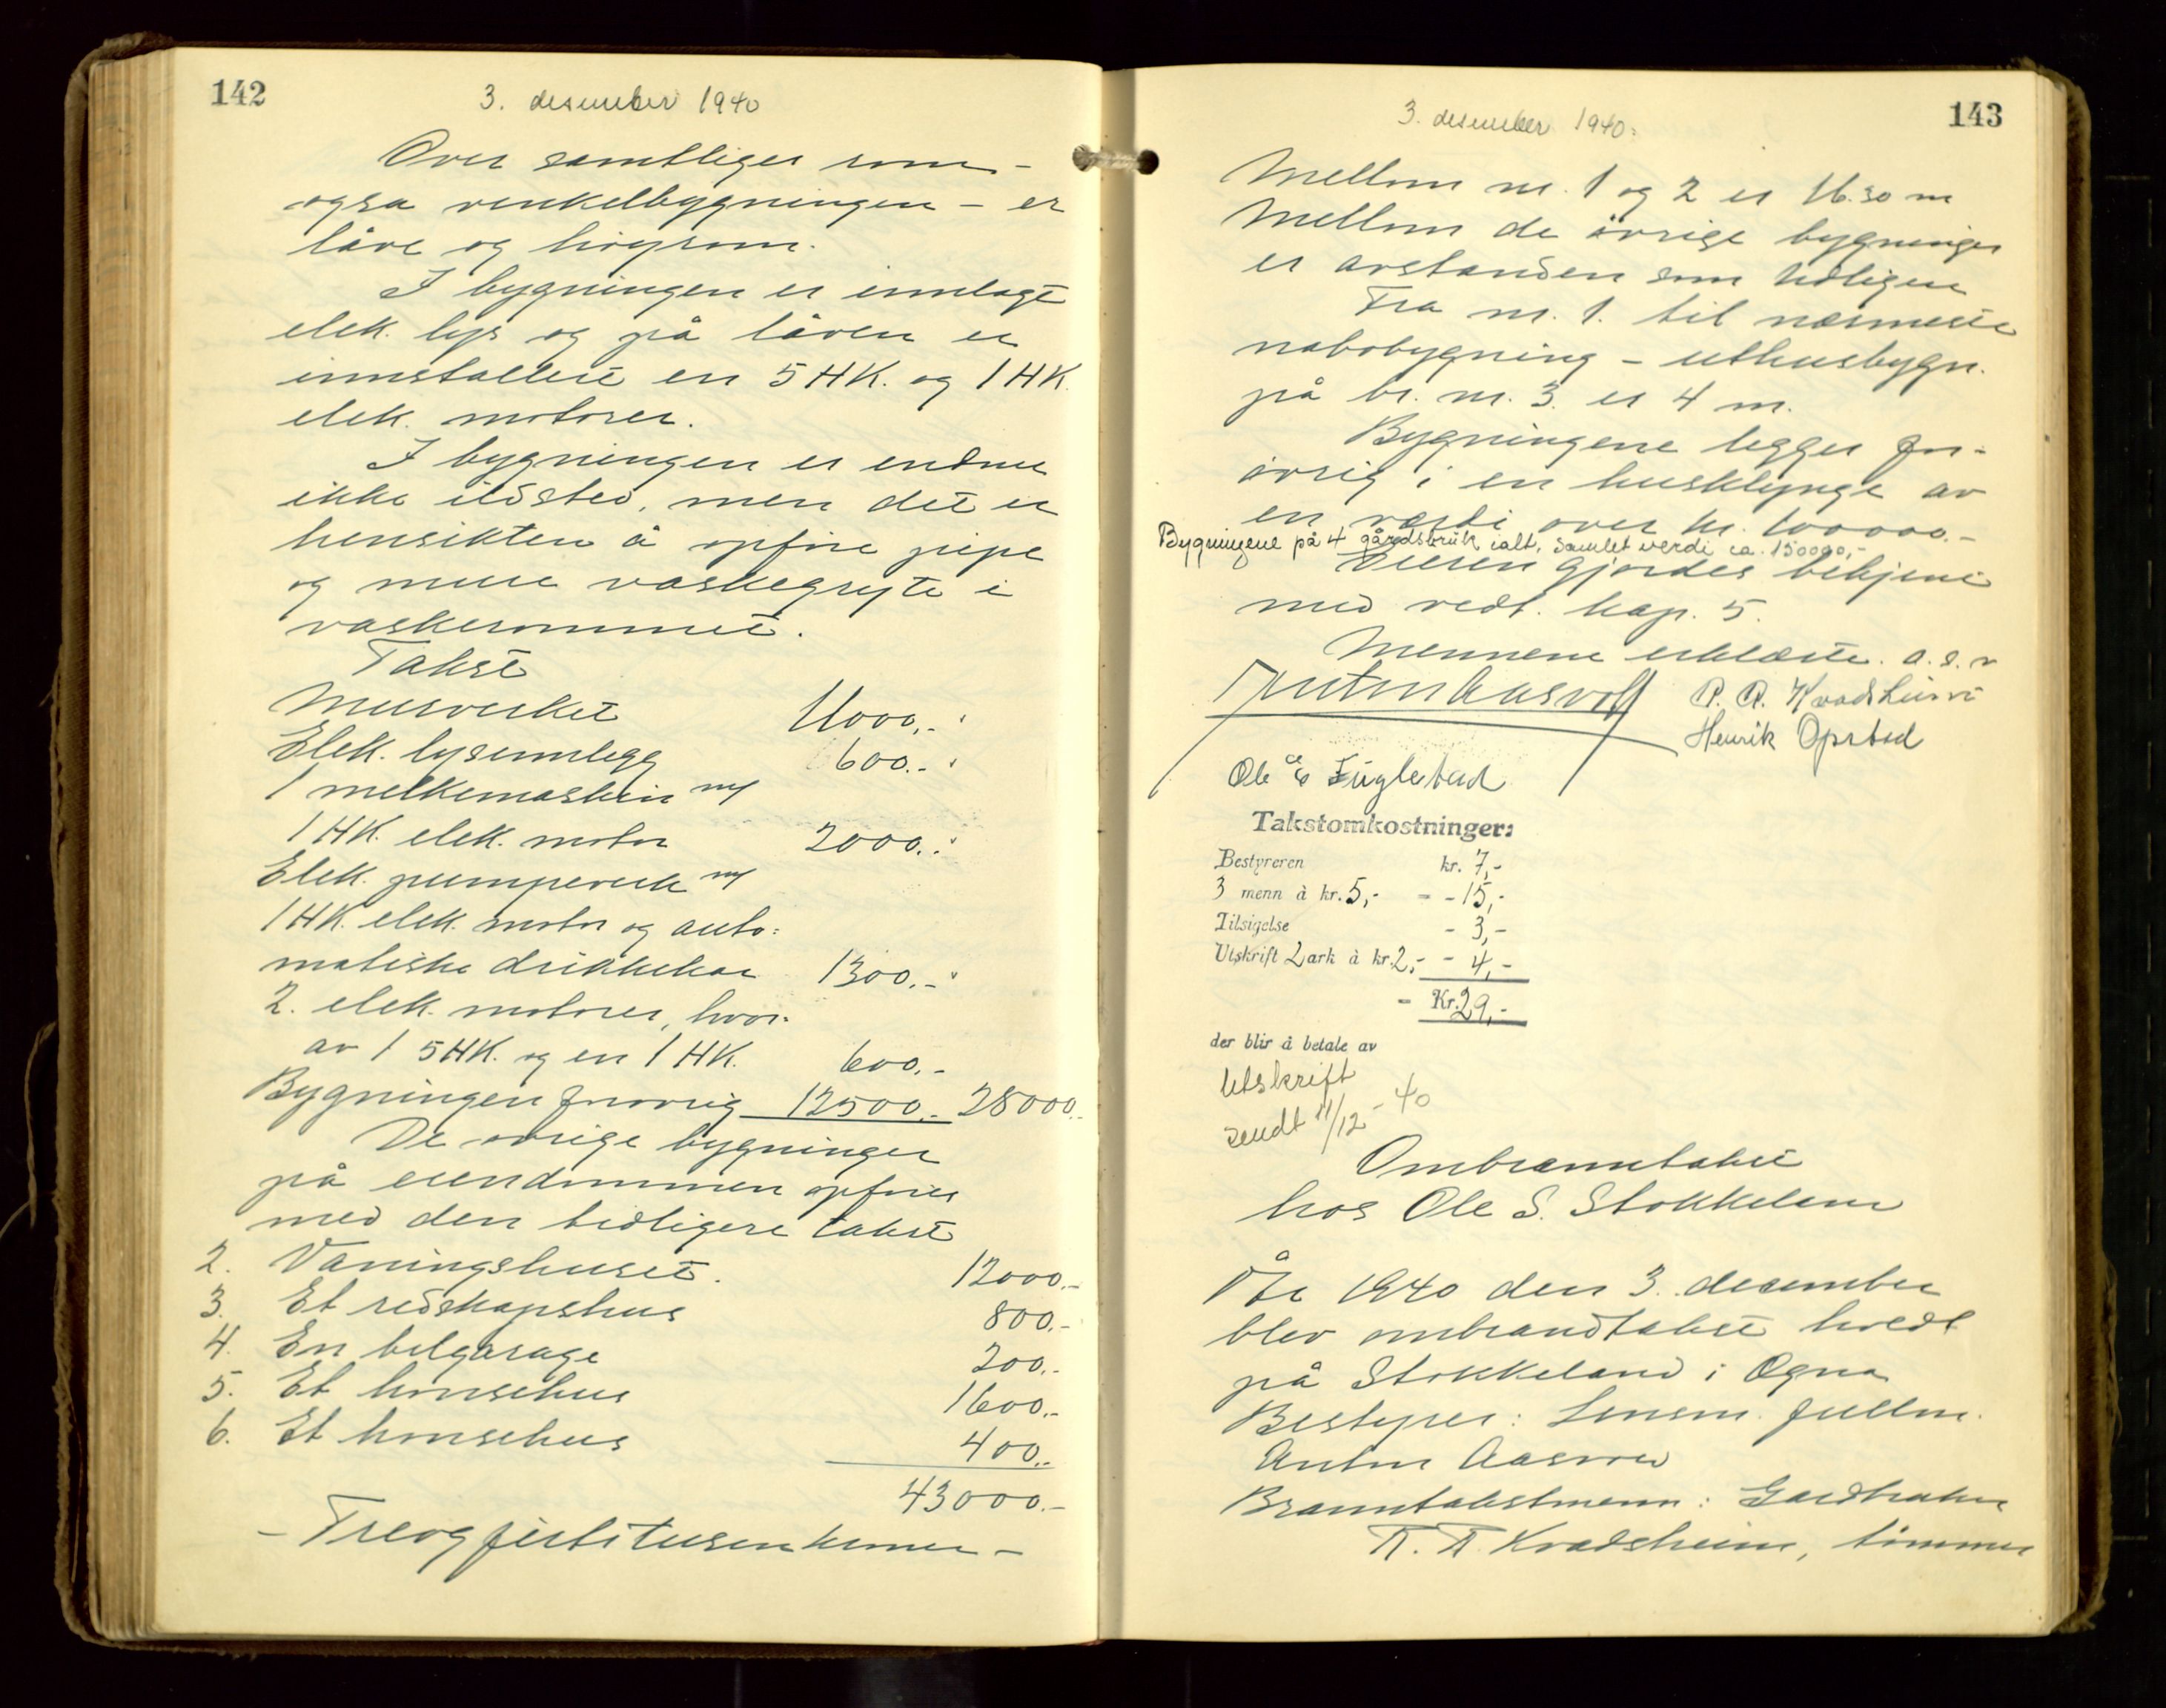 142
3. desember 1940
Over samtliger rom -
også vinkelbygningen - er
låve og høyrom.
I bygningen er innlagt
elek. lys og på låven er
innstallert en 5 HK. og 1 HK.
elek. motorer.
I bygningen er endnu
ikke ildsted, men det er
hensikten å opføre pipe
og mure vaskegryte i
vaskerommet.
Takst
Murverket 11000,-
Elek. lysinnlegg 600.-
1 melkemaskin m/
1 HK. elek. motor 2000.-
Elek. pumpeverk m/
1 HK. elek. motor og auto-
matiske drikkekar 1300.-
2. elek. motorer, hvor-
av 1 5 HK. og en 1 HK. 600.-
Bygningen forøvrig 12500.- 28000.-
De øvrige bygninger
på eiendommen opføres
med den tidligere takst
2. Våningshuset. 12000.-
3. Et redskapshus 800.-
4. En bilgarage 200.-
5. Et hønsehus 1600.-
6. Et hønsehus 400.-
43000.-
- Treogførtitusen kroner -
143
3. desember 1940.
Mellom nr. 1 og 2 er 16.50 m
Mellom de øvrige bygninger
er avstanden som tidligere
Fra nr. 1. til nærmeste
nabobygning - uthusbygn.
på br. nr. 3. er 4 m.
Bygningene ligger for-
øvrig i en husklynge av
en verdi over kr. 100000.-
Bygningene på 4 gårdsbruk ialt, samlet verdi ca. 150000,-
Eieren gjordes bekjent
med vedt. kap. 5.
Mennene erklærte. o. s. v
Anton Aasvold P. R. Kvadsheim
Henrik Opstad
Ole E Fuglestad
Takstomkostninger:
Bestyreren kr. 7,-
3 menn à kr. 5,- - - 15,-
Tilsigelse - 3,-
Utskrift 2 ark à kr. 2,- - 4,-
- Kr. 29,-
der blir å betale av
Utskrift
sendt 11/12 - 40
Ombranntakst
hos Ole S. Stokkeland
År 1940 den 3. desember
blev ombrandtakst holdt
på Stokkeland i Ogna
Bestyrer: Lensm. fullm.
Anton Aasvold
Branntakstmenn: Gardbruker
R. R. Kvadsheim, tømmer